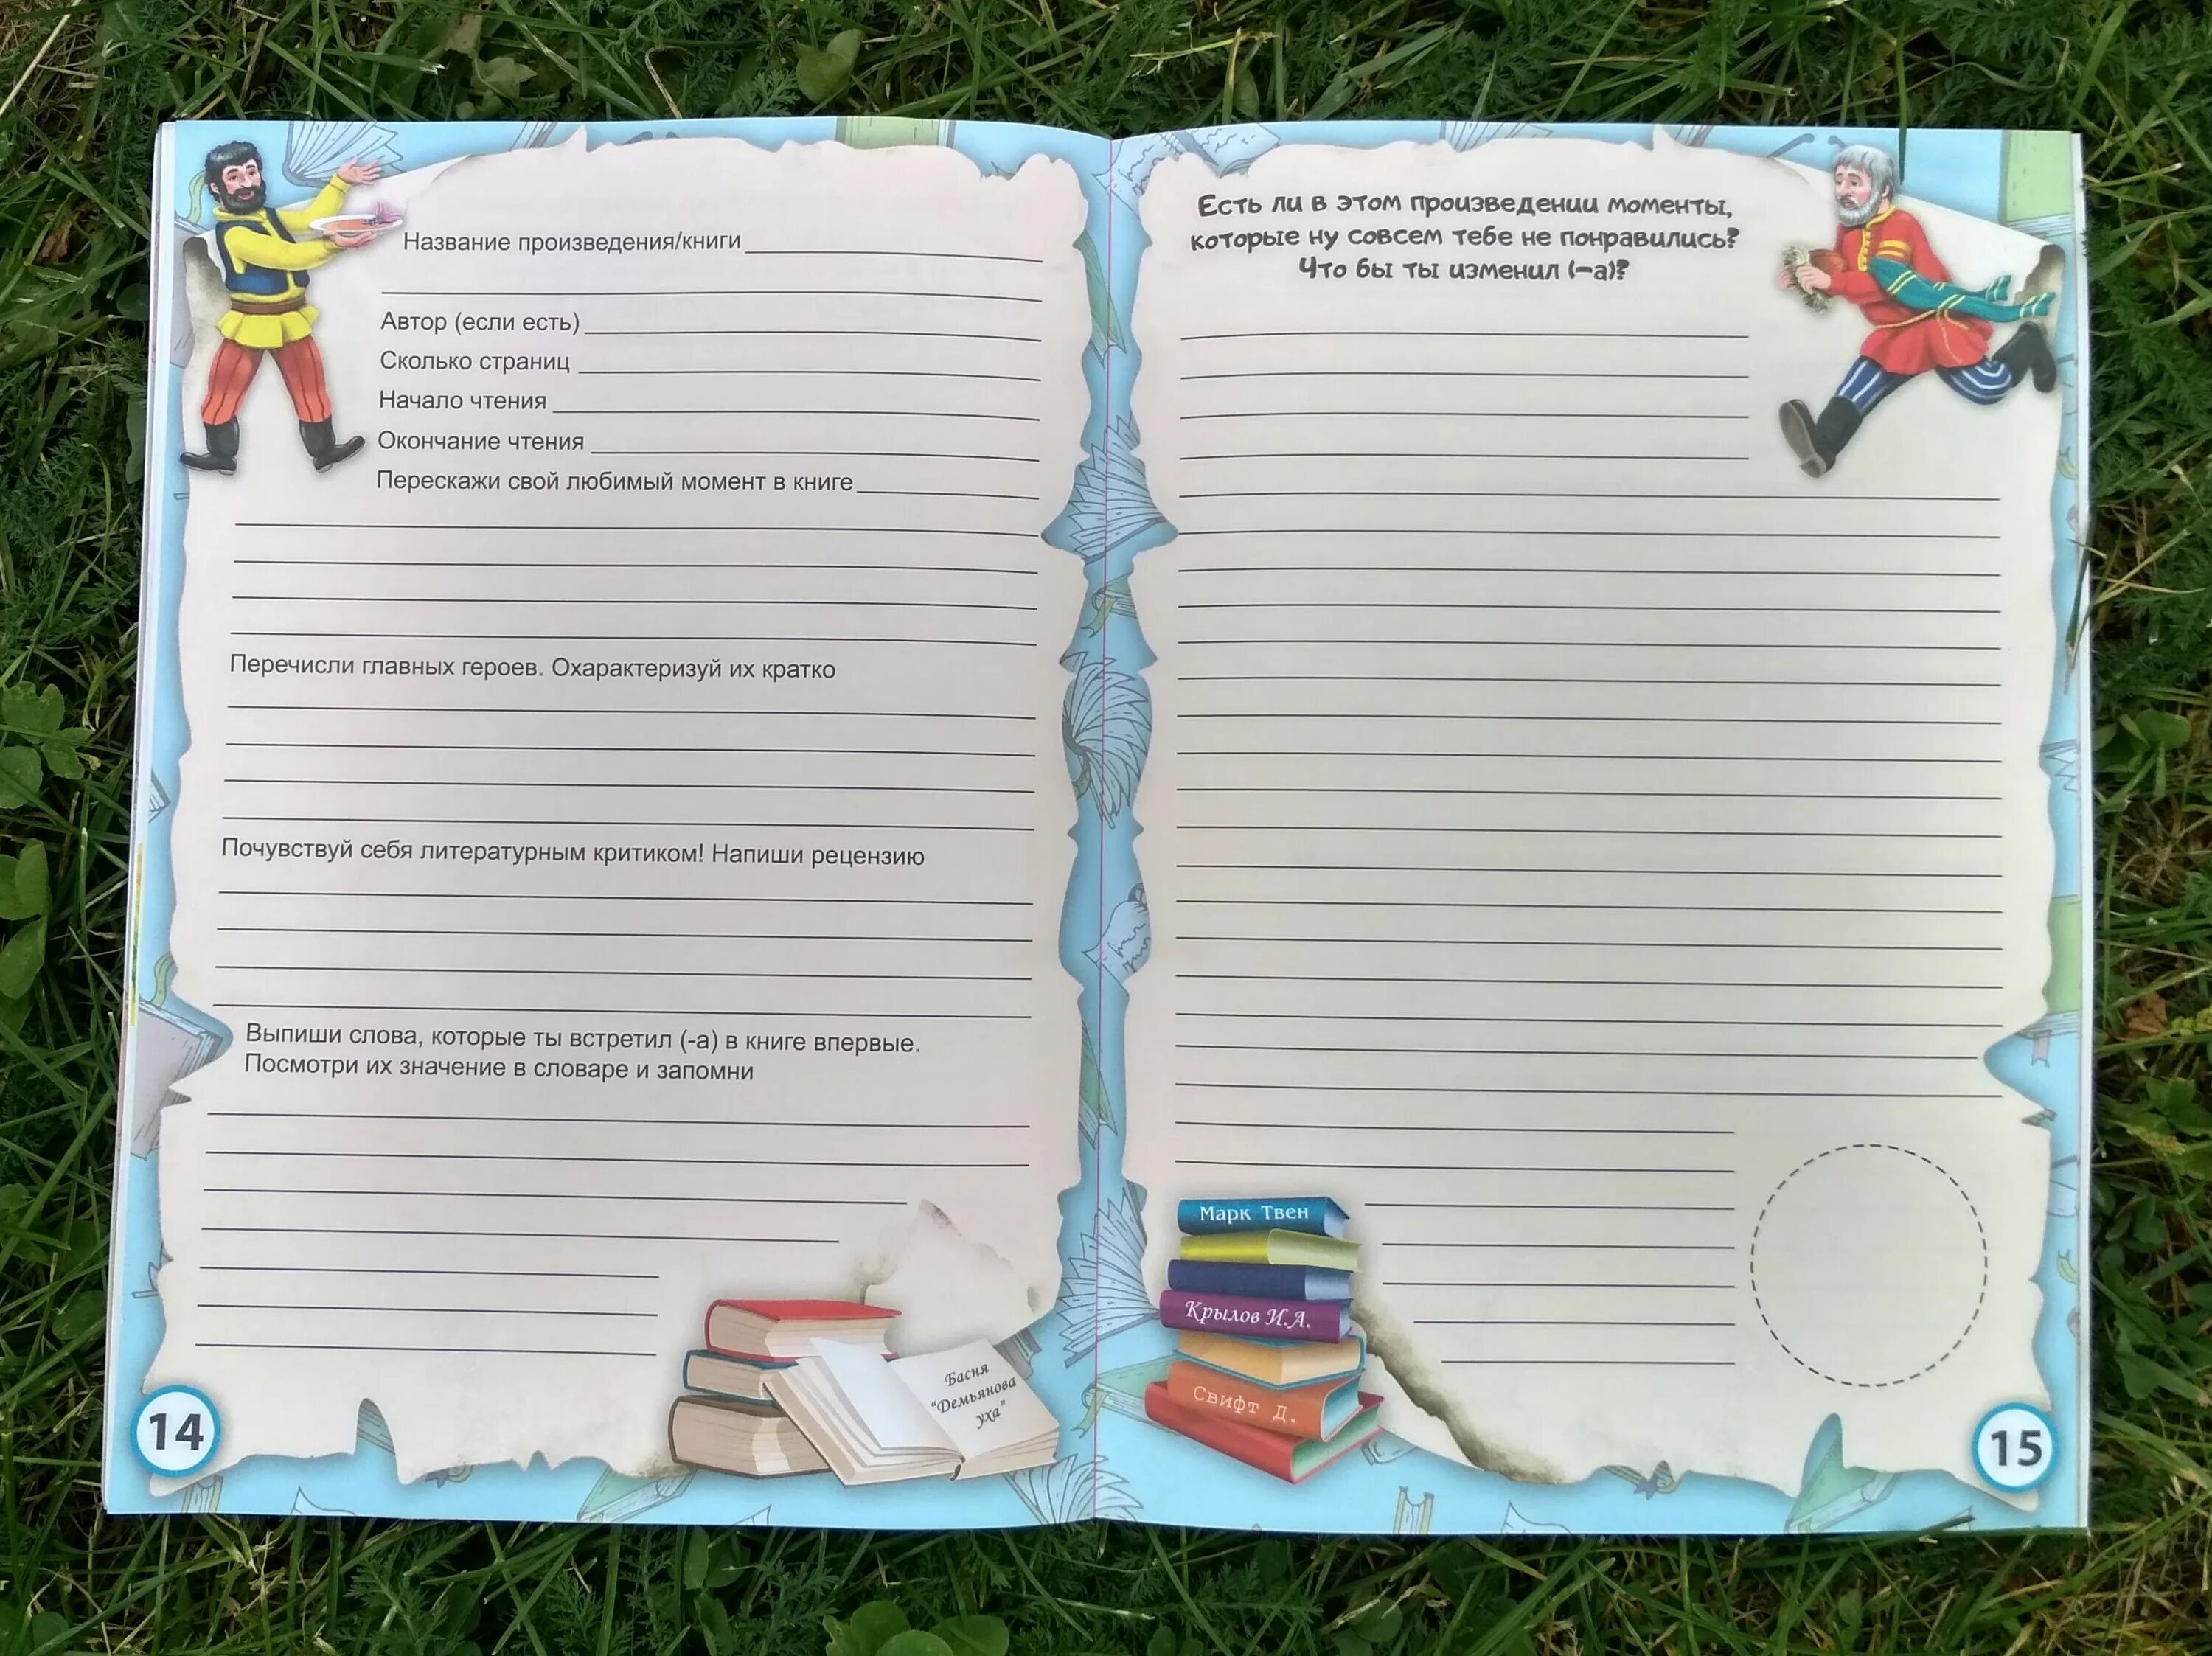 Название произведения/книги
Автор (если есть)
Сколько страниц
Начало чтения
Окончание чтения
Перескажи свой любимый момент в книге
Перечисли главных героев. Охарактеризуй их кратко
Почувствуй себя литературным критиком! Напиши рецензию
Выпиши слова, которые ты встретил (-а) в книге впервые.
Посмотри их значение в словаре и запомни
Басня
"Демьянова
уха"
14
Есть ли в этом произведении моменты,
которые ну совсем тебе не понравились?
Что бы ты изменил (-а)?
Марк Твен
Крылов И.А.
Свифт Д.
15